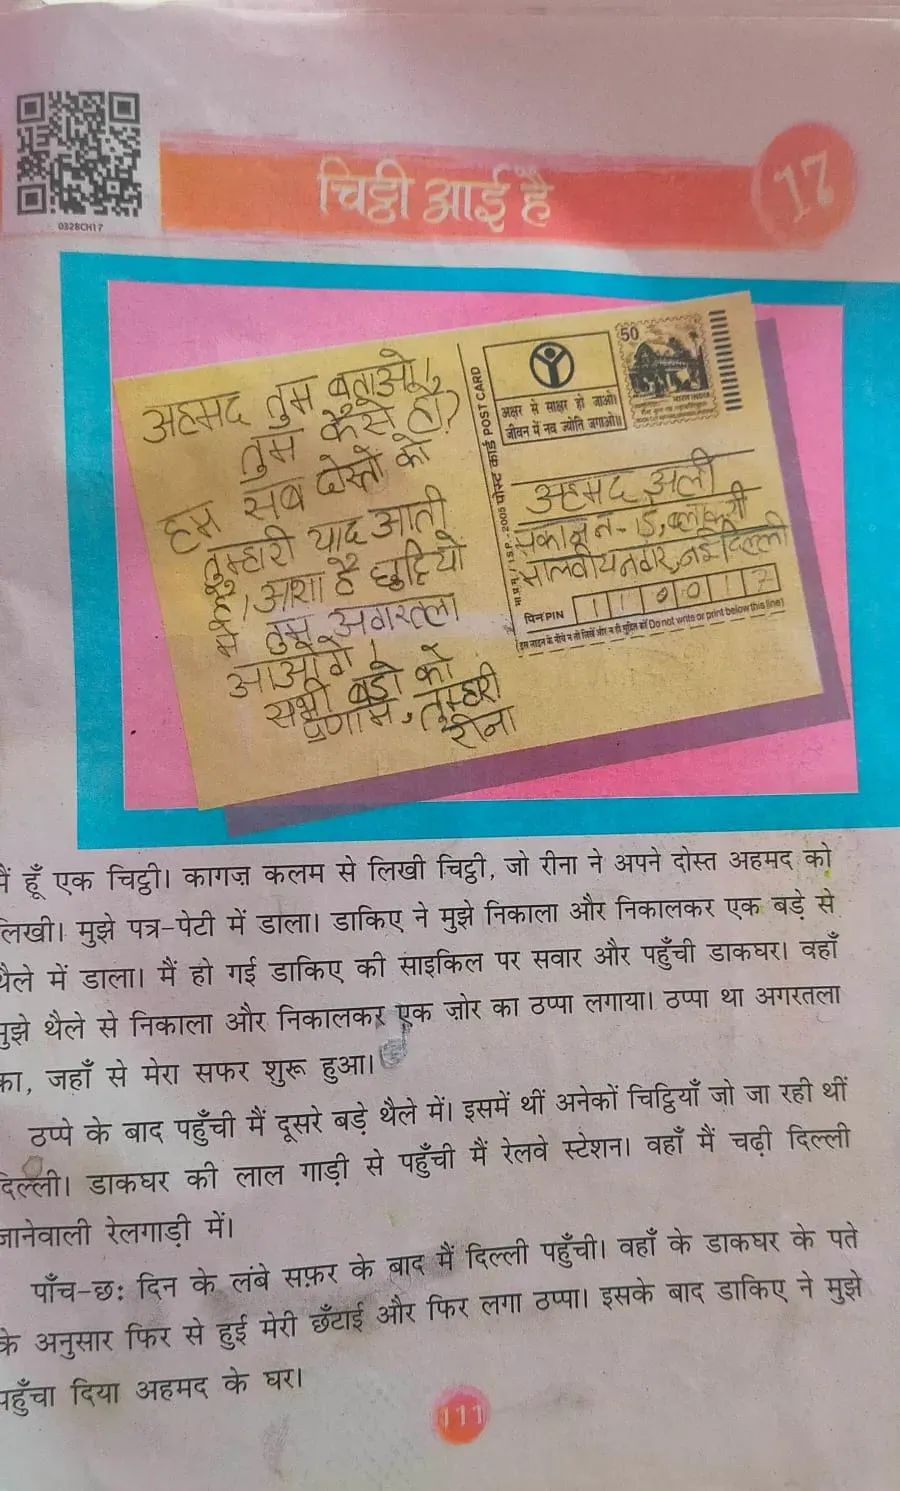 0328CH17
चिट्ठी आई है
17
अहमद तुम बताओ,
तुम कैसे हो?
हम सब दोस्तों को
तुम्हारी याद आती
है। आशा है छुट्टियों
में तुम अगरतला
आओगे।
सभी बड़ो को
प्रणाम, तुम्हारी
रीना
पोस्ट कार्ड POST CARD
अक्षर से साक्षर हो जाओ।
जीवन में नव ज्योति जगाओ॥
50
भारत INDIA
अहमद अली
मालवीय नगर, नई दिल्ली
पिन PIN 110017
(इस लाइन के नीचे न तो लिखें और न ही मुद्रित करें Do not write or print below this line)
मैं हूँ एक चिट्ठी। कागज़ कलम से लिखी चिट्ठी, जो रीना ने अपने दोस्त अहमद को
लिखी। मुझे पत्र-पेटी में डाला। डाकिए ने मुझे निकाला और निकालकर एक बड़े से
थैले में डाला। मैं हो गई डाकिए की साइकिल पर सवार और पहुँची डाकघर। वहाँ
मुझे थैले से निकाला और निकालकर एक ज़ोर का ठप्पा लगाया। ठप्पा था अगरतला
का, जहाँ से मेरा सफर शुरू हुआ।
ठप्पे के बाद पहुँची मैं दूसरे बड़े थैले में। इसमें थीं अनेकों चिट्ठियाँ जो जा रही थीं
दिल्ली। डाकघर की लाल गाड़ी से पहुँची मैं रेलवे स्टेशन। वहाँ मैं चढ़ी दिल्ली
जानेवाली रेलगाड़ी में।
पाँच-छः दिन के लंबे सफ़र के बाद मैं दिल्ली पहुँची। वहाँ के डाकघर के पते
के अनुसार फिर से हुई मेरी छँटाई और फिर लगा ठप्पा। इसके बाद डाकिए ने मुझे
पहुँचा दिया अहमद के घर।
111